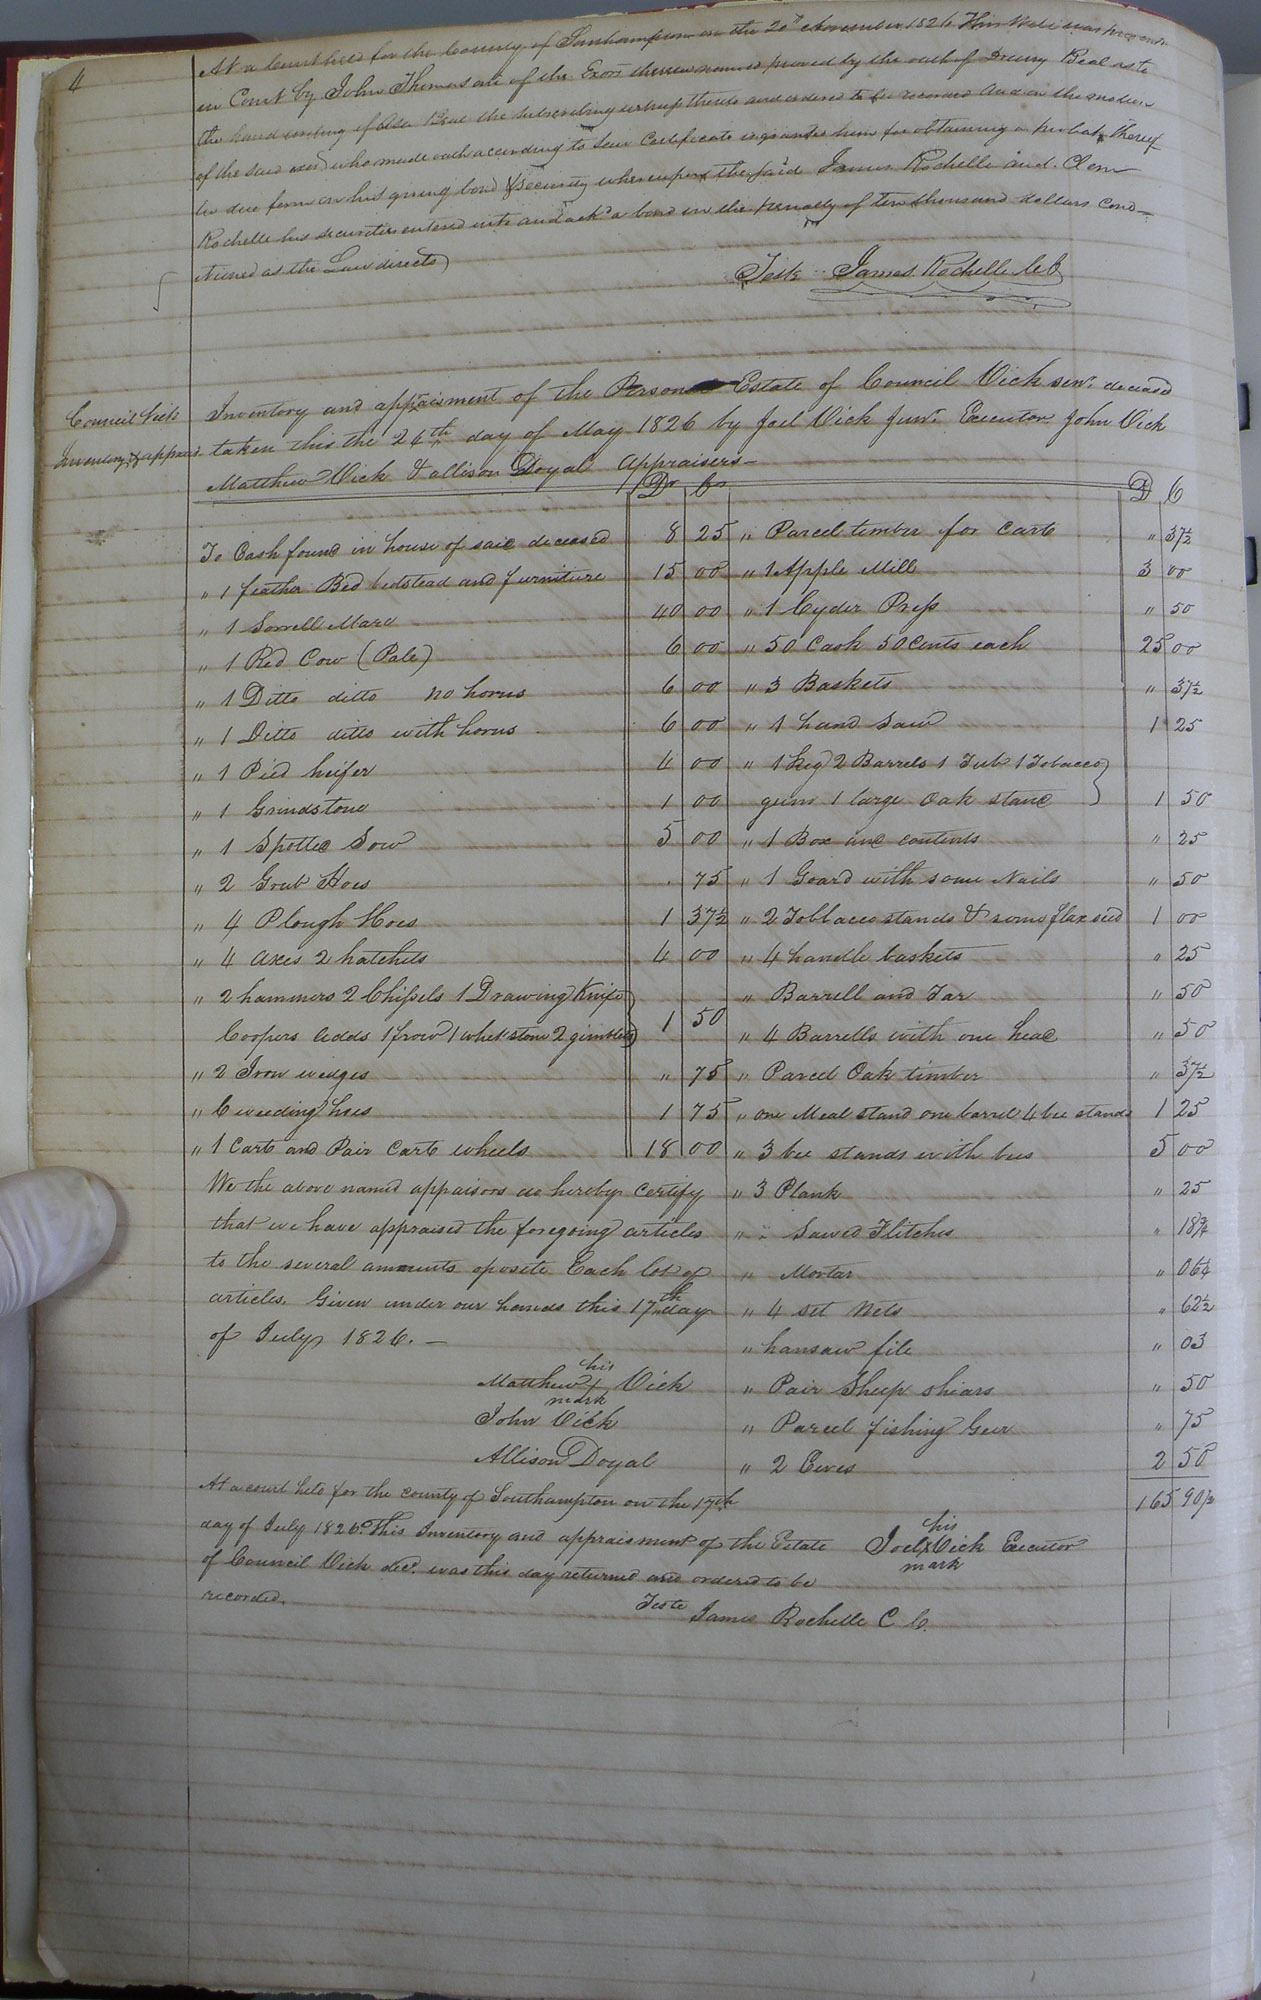 4
At a Court held for the County of Southampton on the 20th November 1826 This Will was presented
in Court by John Thomas one of the Exors therein named proved by the oath of Drury Beal as to
the hand writing of Asa Beal the subscribing witness thereto and ordered to be recorded And on the motion
of the said exor who made oath according to Law Certificate is granted him for obtaining a probat thereof
in due form on his giving bond & security whereupon the said James Rochelle and Clem
Rochelle his securities entered into and ackd a bond in the penalty of ten thousand dollars cond-
itioned as the Law directs
Teste James Rochelle CC
Council Vick
Inventory & apprais
Inventory and appraisment of the Personal Estate of Council Vick senr. deceased
taken this the 26th day of May 1826 by Joel Vick Junr. Executor John Vick
Matthew Vick & allison Doyal Appraisers—
Dr Cr
D C
To Cash found in house of said deceased 8 25
" 1 feather Bed bedstead and furniture 15 00
" 1 Sorrell Mare 40 00
" 1 Red Cow (Pale) 6 00
" 1 Ditto ditto no horns 6 00
" 1 Ditto ditto with horns 6 00
" 1 Pied heifer 4 00
" 1 Grindstone 1 00
" 1 Spotted Sow 5 00
" 2 Grub Hoes . 75
" 4 Plough Hoes 1 37½
" 4 axes 2 hatchets 4 00
" 2 hammers 2 Chissels 1 Drawing Knife
Coopers adds 1 frow 1 whet stone 2 gimblets 1 50
" 2 Iron wedges " 75
" 6 weeding hoes 1 75
" 1 Cart and Pair Cart wheels 18 00
We the above named appaisors do hereby certify
that we have appraised the foregoing articles
to the several amounts oposite Each lot of
articles. Given under our hands this 17th day
of July 1826. —
his
Matthew X Vick
mark
John Vick
Allison Doyal
" Parcel timber for Cart " 37½
" 1 Apple Mill 3 00
" 1 Cyder Press " 50
" 50 Cask 50 Cents each 25 00
" 3 Baskets " 37½
" 1 hand saw 1 25
" 1 Keg 2 Barrels 1 Tub 1 Tobacco
gum 1 large Oak stand 1 50
" 1 Box and contents " 25
" 1 Goard with some Nails " 50
" 2 Tobbacco stands & some flax seed 1 00
" 4 handle baskets " 25
" Barrell and Tar " 50
" 4 Barrells with one head " 50
" Parcel Oak timber " 37½
" one Meal stand one barrel 4 bee stands 1 25
" 3 bee stands with bees 5 00
" 3 Plank " 25
" " Sawed Flitches " 18¾
" Mortar " 06¼
" 4 set Nets " 62½
" hansaw file " 03
" Pair Sheep shears " 50
" Parcel fishing Geer " 75
" 2 Ewes 2 50
165 90½
his
Joel X Vick Executor
mark
At a court held for the county of Southampton on the 17th
day of July 1826. This Inventory and appraisment of the Estate
of Council Vick decd. was this day returned and ordered to be
recorded.
Teste
James Rochelle C C.